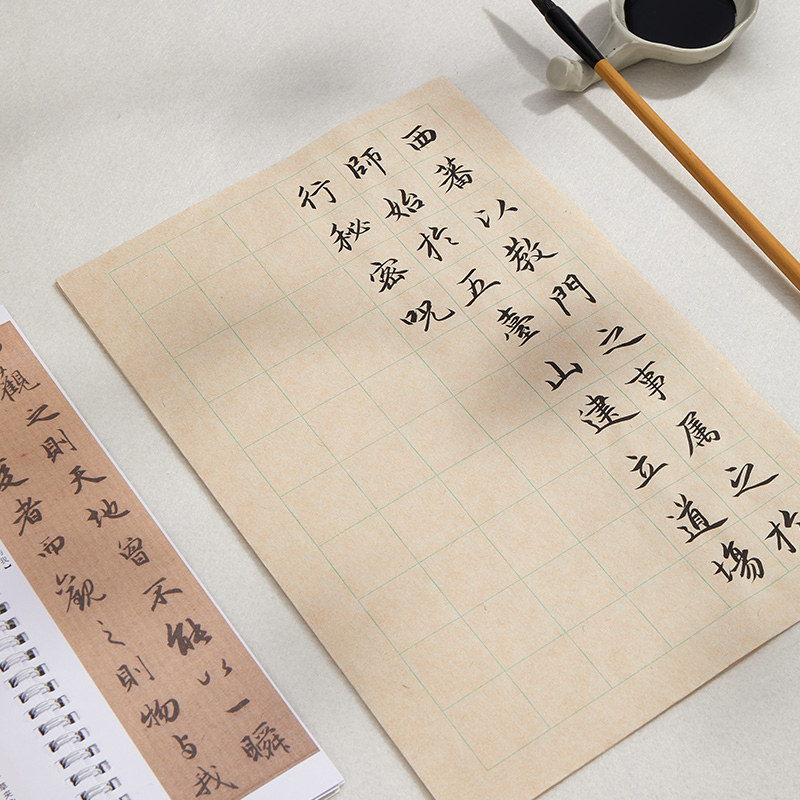 西蕃以教門之事属之於
師始於五臺山建立道場
行秘密呪
觀之則天地曾不能以一瞬
變者而觀之則物与我